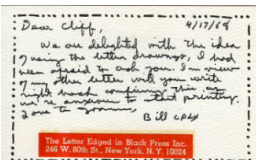 Dear Cliff, 4/17/68
We are delighted with the idea
of using the letter drawings, I had
been afraid to ask you. I'm
other letter will you write
right back confirming this as
we're anxious to start printing.
Love to
Bill
The Letter Edged in Black Press Inc.
246 W. 80th St., New York, N.Y. 10024